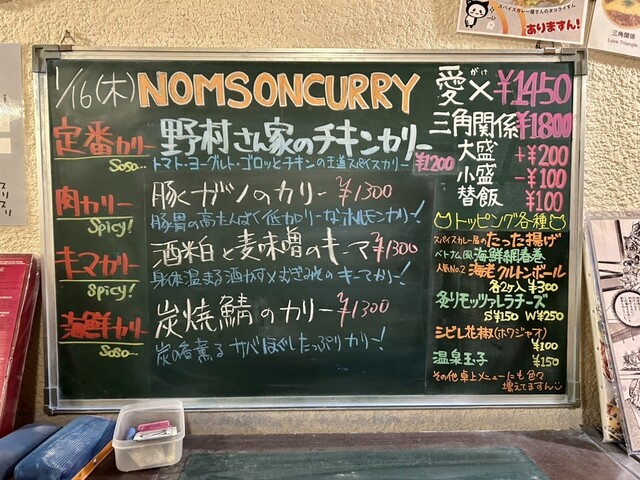 スパイスカレー屋さんのタコライス
ありますん!
三角関係
Love Triangle
1/16(木) NOMSONCURRY
定番カリー
Soso...
野村さん家のチキンカリー
トマト・ヨーグルト・ゴロッとチキンの王道スパイスカリー ¥1200
肉カリー
Spicy!
豚ガツのカリー ¥1300
豚胃の高たんぱく低カロリーなホルモンカリー!
キマカリー
Spicy!
酒粕と麦味噌のキーマ ¥1300
身体温まる酒かす×むぎみそのキーマカリー!
海鮮カリー
Soso...
炭焼鯖のカリー ¥1300
炭の香薫るサバほぐしたっぷりカリー!
愛×(がけ) ¥1450
三角関係 ¥1800
大盛 +¥200
小盛 -¥100
替飯 ¥100
トッピング各種
スパイスカレー屋のたった揚げ
ベトナム風海鮮網春巻
人気No.2 海老クルトンボール
各2ヶ入¥300
炙りモッツァレラチーズ
S¥150 W¥250
シビレ花椒(ホワジャオ)
¥100
温泉玉子 ¥150
その他卓上メニューにも色々
増えてますん